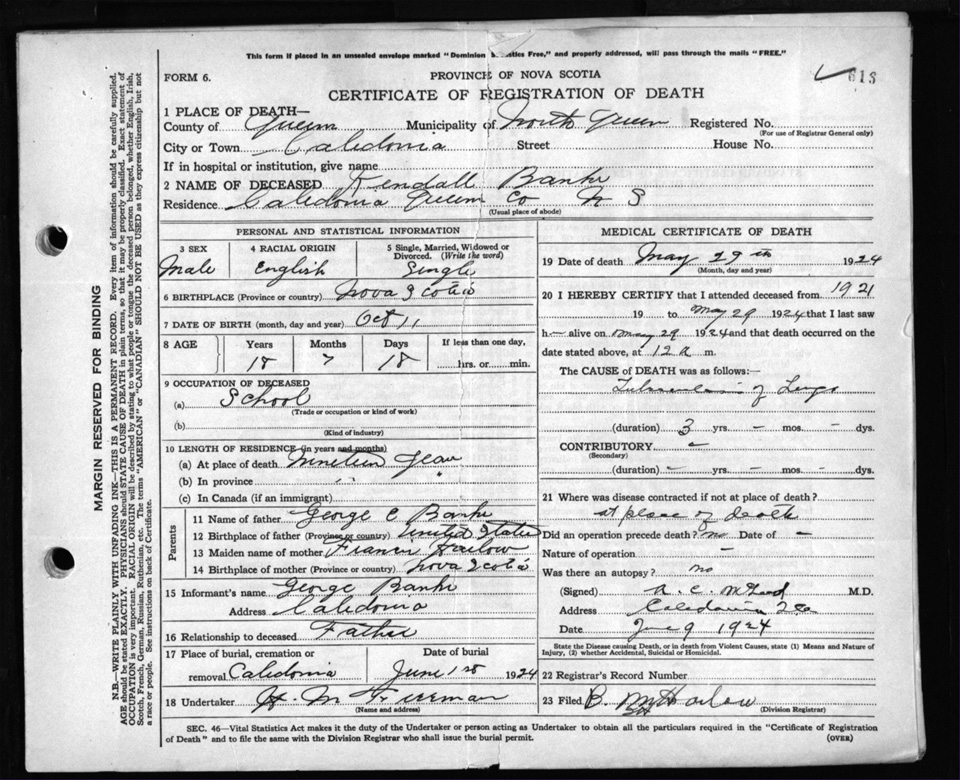 This form if placed in an unsealed envelope marked "Dominion Statistics Free," and properly addressed, will pass through the mails "FREE."
FORM 6.
PROVINCE OF NOVA SCOTIA
613
CERTIFICATE OF REGISTRATION OF DEATH
1 PLACE OF DEATH—
County of Queens Municipality of North Queen Registered No.
(For use of Registrar General only)
City or Town Caledonia Street House No.
If in hospital or institution, give name
2 NAME OF DECEASED Kendall Banks
Residence Caledonia Queens Co N S
(Usual place of abode)
PERSONAL AND STATISTICAL INFORMATION
3 SEX 4 RACIAL ORIGIN 5 Single, Married, Widowed or Divorced. (Write the word)
Male English Single
6 BIRTHPLACE (Province or country) Nova Scotia
7 DATE OF BIRTH (month, day and year) Oct 11
8 AGE Years Months Days If less than one day,
18 7 18 hrs. or min.
9 OCCUPATION OF DECEASED
(a) School
(Trade or occupation or kind of work)
(b)
(Kind of industry)
10 LENGTH OF RESIDENCE (in years and months)
(a) At place of death Nineteen Years
(b) In province " "
(c) In Canada (if an immigrant)
Parents
11 Name of father George C Banks
12 Birthplace of father (Province or country) United States
13 Maiden name of mother Frances Harlow
14 Birthplace of mother (Province or country) Nova Scotia
15 Informant's name George Banks
Address Caledonia
16 Relationship to deceased Father
17 Place of burial, cremation or removal Caledonia Date of burial June 1st 1924
18 Undertaker H M Freeman
(Name and address)
MEDICAL CERTIFICATE OF DEATH
19 Date of death May 29th 1924
(Month, day and year)
20 I HEREBY CERTIFY that I attended deceased from 1921
19 to May 29 1924 that I last saw
h— alive on May 29 1924 and that death occurred on the
date stated above, at 12 a m.
The CAUSE of DEATH was as follows:—
Tuberculosis of Lungs
(duration) 3 yrs. – mos. – dys.
CONTRIBUTORY –
(Secondary)
(duration) – yrs. – mos. – dys.
21 Where was disease contracted if not at place of death?
at place of death
Did an operation precede death? no Date of –
Nature of operation –
Was there an autopsy? no
(Signed) M.D.
Address Caledonia
Date June 9 1924
State the Disease causing Death, or in death from Violent Causes, state (1) Means and Nature of
Injury, (2) whether Accidental, Suicidal or Homicidal.
22 Registrar's Record Number
23 Filed Harlow
(Division Registrar)
SEC. 46—Vital Statistics Act makes it the duty of the Undertaker or person acting as Undertaker to obtain all the particulars required in the "Certificate of Registration
of Death" and to file the same with the Division Registrar who shall issue the burial permit.
(OVER)
MARGIN RESERVED FOR BINDING
N.B.—WRITE PLAINLY WITH UNFADING INK—THIS IS A PERMANENT RECORD. Every item of information should be carefully supplied.
AGE should be stated EXACTLY. PHYSICIANS should STATE CAUSE OF DEATH in plain terms, so that it may be properly classified. Exact statement of
OCCUPATION is very important. RACIAL ORIGIN will be described by stating to what people or tongue the deceased person belonged, whether English, Irish,
Scotch, French, German, Russian, Ruthenian, etc. The terms "AMERICAN" or "CANADIAN" SHOULD NOT BE USED as they express citizenship but not
a race or people. See instructions on back of Certificate.